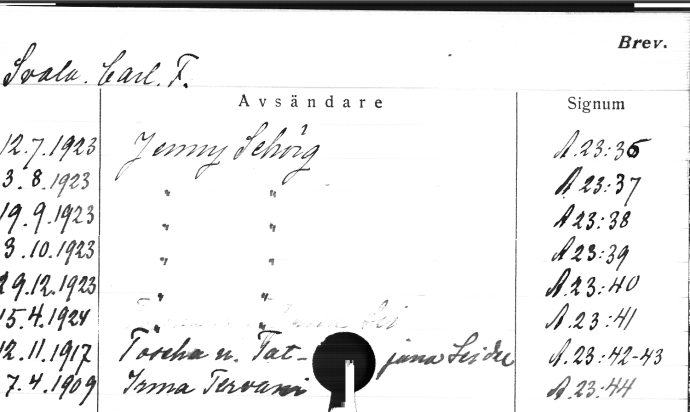 Brev.
Svala. Carl. F.
Avsändare Signum
12.7.1923 Jenny Schörg A.23:36
3.8.1923 " " A 23:37
19.9.1923 " " A 23:38
3.10.1923 " " A 23:39
29.12.1923 " " A.23:40
15.4.1924 " " A.23:41
12.11.1917 Toscha u. Tat- jana Seidel A.23:42-43
7.4.1909 Irma Tervani A.23:44